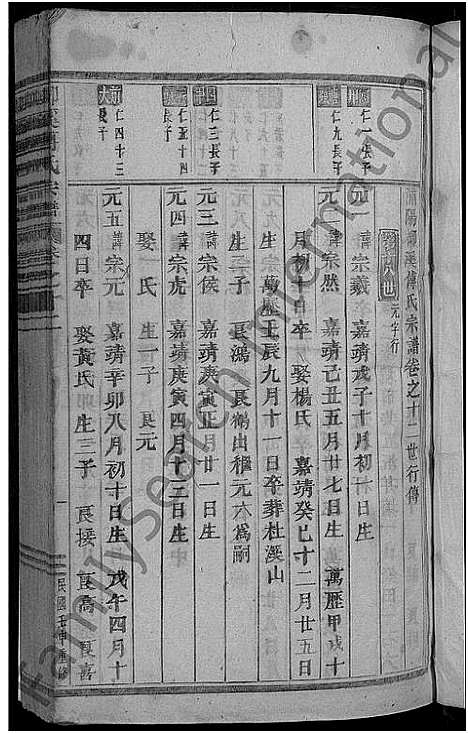 浦陽柳溪傅氏宗譜卷之十二世行傳
元字行
仁一長子
元一諱宗羲 嘉靖戊子十月初一日生
仁九長子
元二諱宗然 嘉靖己丑五月廿七日生 萬歷甲戌十
月初十日卒 娶楊氏 嘉靖癸巳十二月廿五日
生 萬歷壬辰九月十一日卒葬杜溪山
生二子 良鴻 良鶴出繼元六爲嗣
仁三長子
元三諱宗侯 嘉靖庚寅正月廿一日生
仁五十四
長子
元四諱宗虎 嘉靖庚寅四月十三日生
娶 氏 生一子 良元
仁四十三
長子
元五諱宗元 嘉靖辛卯八月初十日生 戊午四月十
四日卒 娶黃氏 生三子 良接 良高 良喜
氏宗譜
民國壬申重修
FamilySearch International